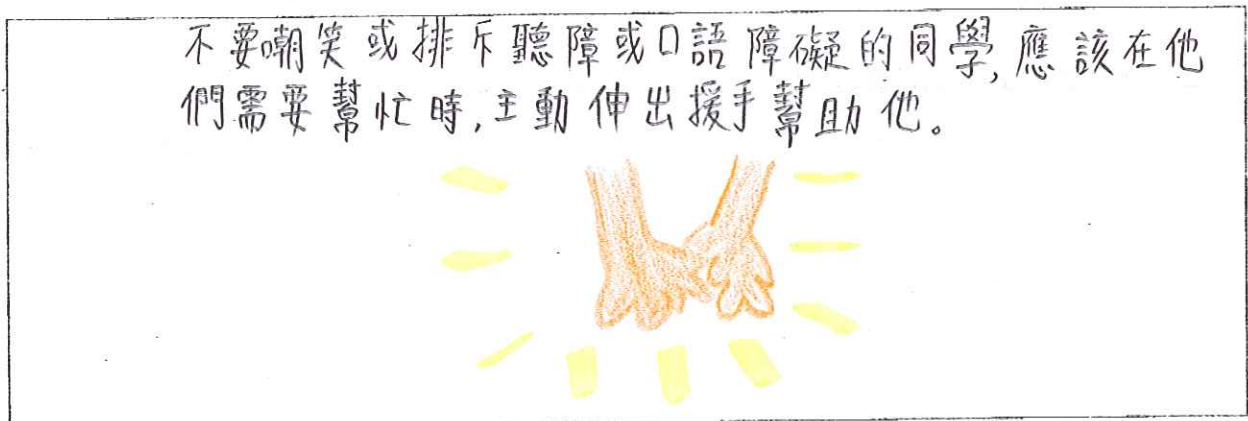 不要嘲笑或排斥聽障或口語障礙的同學,應該在他
們需要幫忙時,主動伸出援手幫助他。